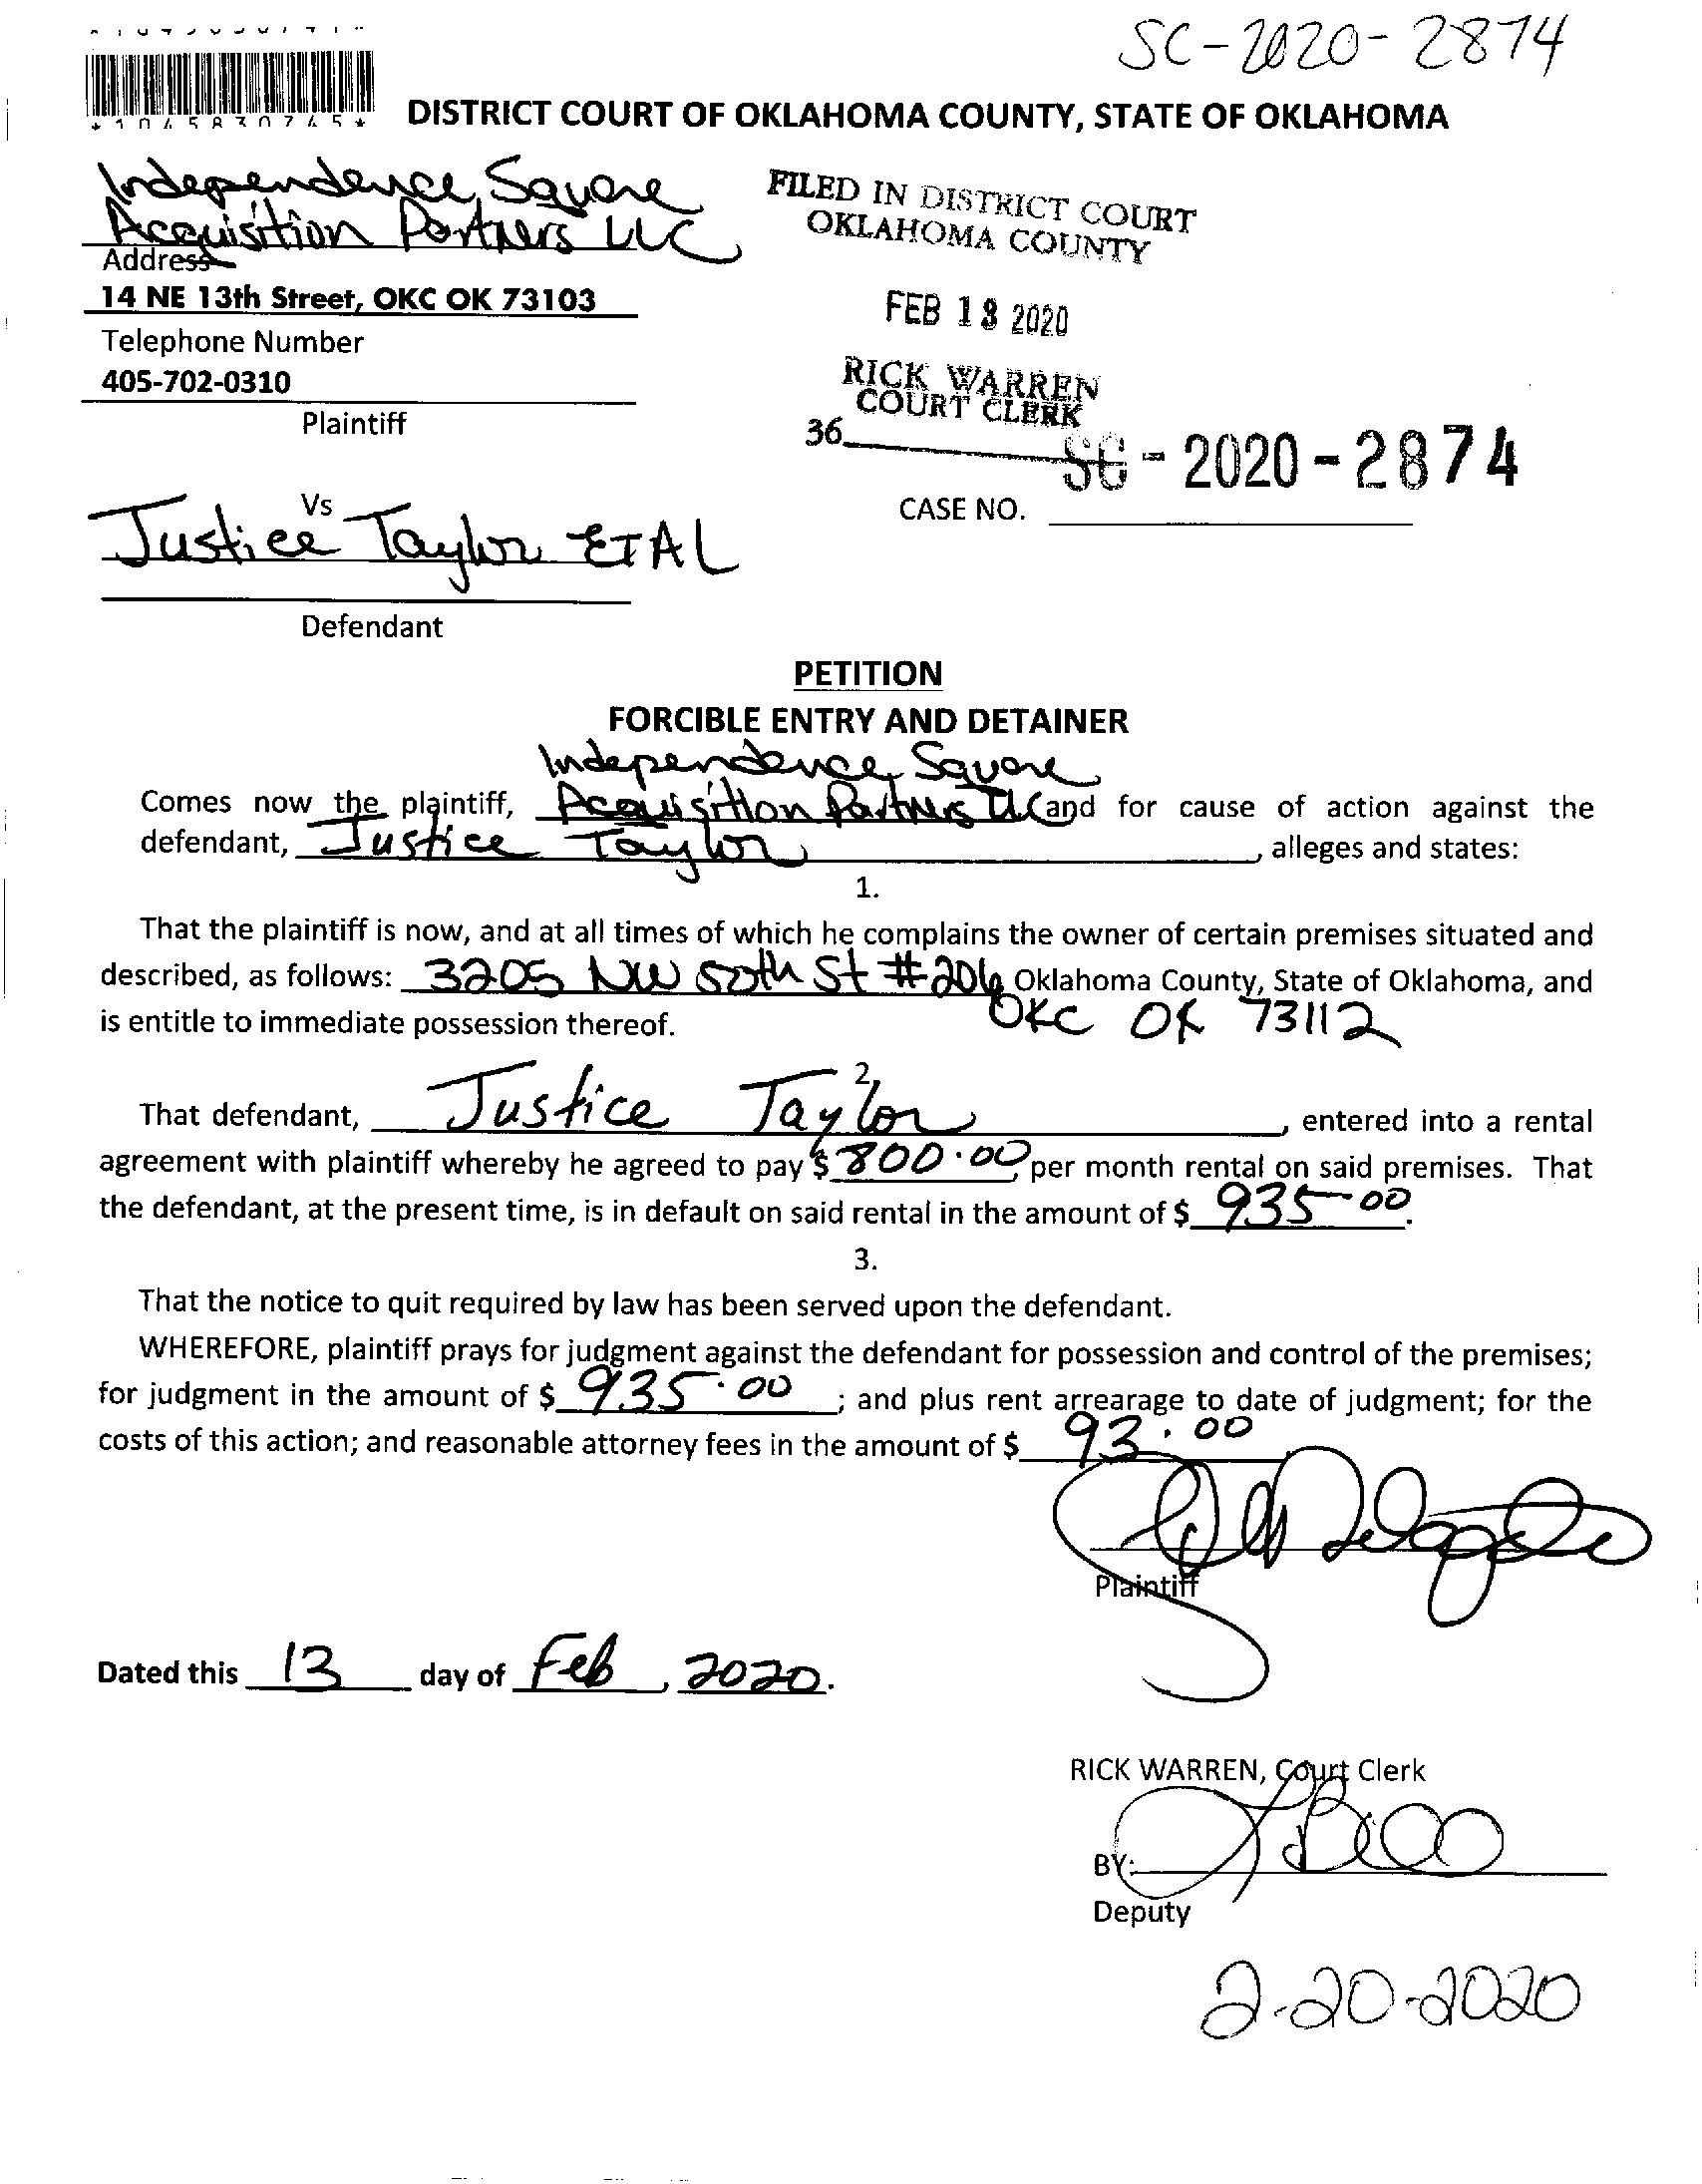 SC-2020-2874
*1045830745*
DISTRICT COURT OF OKLAHOMA COUNTY, STATE OF OKLAHOMA
Independence Square
Acquisition Partners LLC
Address
14 NE 13th Street, OKC OK 73103
Telephone Number
405-702-0310
Plaintiff
FILED IN DISTRICT COURT
OKLAHOMA COUNTY
FEB 13 2020
RICK WARREN
COURT CLERK
36
SC-2020-2874
CASE NO.
Vs
Justice Taylor ETAL
Defendant
PETITION
FORCIBLE ENTRY AND DETAINER
Independence Square
Comes now the plaintiff, Acquisition Partners LLC and for cause of action against the
defendant, Justice Taylor, alleges and states:
1.
That the plaintiff is now, and at all times of which he complains the owner of certain premises situated and
described, as follows: 3205 NW 50th St #206 Oklahoma County, State of Oklahoma, and
is entitle to immediate possession thereof. OKC OK 73112
2.
That defendant, Justice Taylor, entered into a rental
agreement with plaintiff whereby he agreed to pay $ 800.00, per month rental on said premises. That
the defendant, at the present time, is in default on said rental in the amount of $ 935 00.
3.
That the notice to quit required by law has been served upon the defendant.
WHEREFORE, plaintiff prays for judgment against the defendant for possession and control of the premises;
for judgment in the amount of $ 935.00; and plus rent arrearage to date of judgment; for the
costs of this action; and reasonable attorney fees in the amount of $ 93.00
Plaintiff
Dated this 13 day of Feb, 2020.
RICK WARREN, Court Clerk
BY:
Deputy
2-20-2020